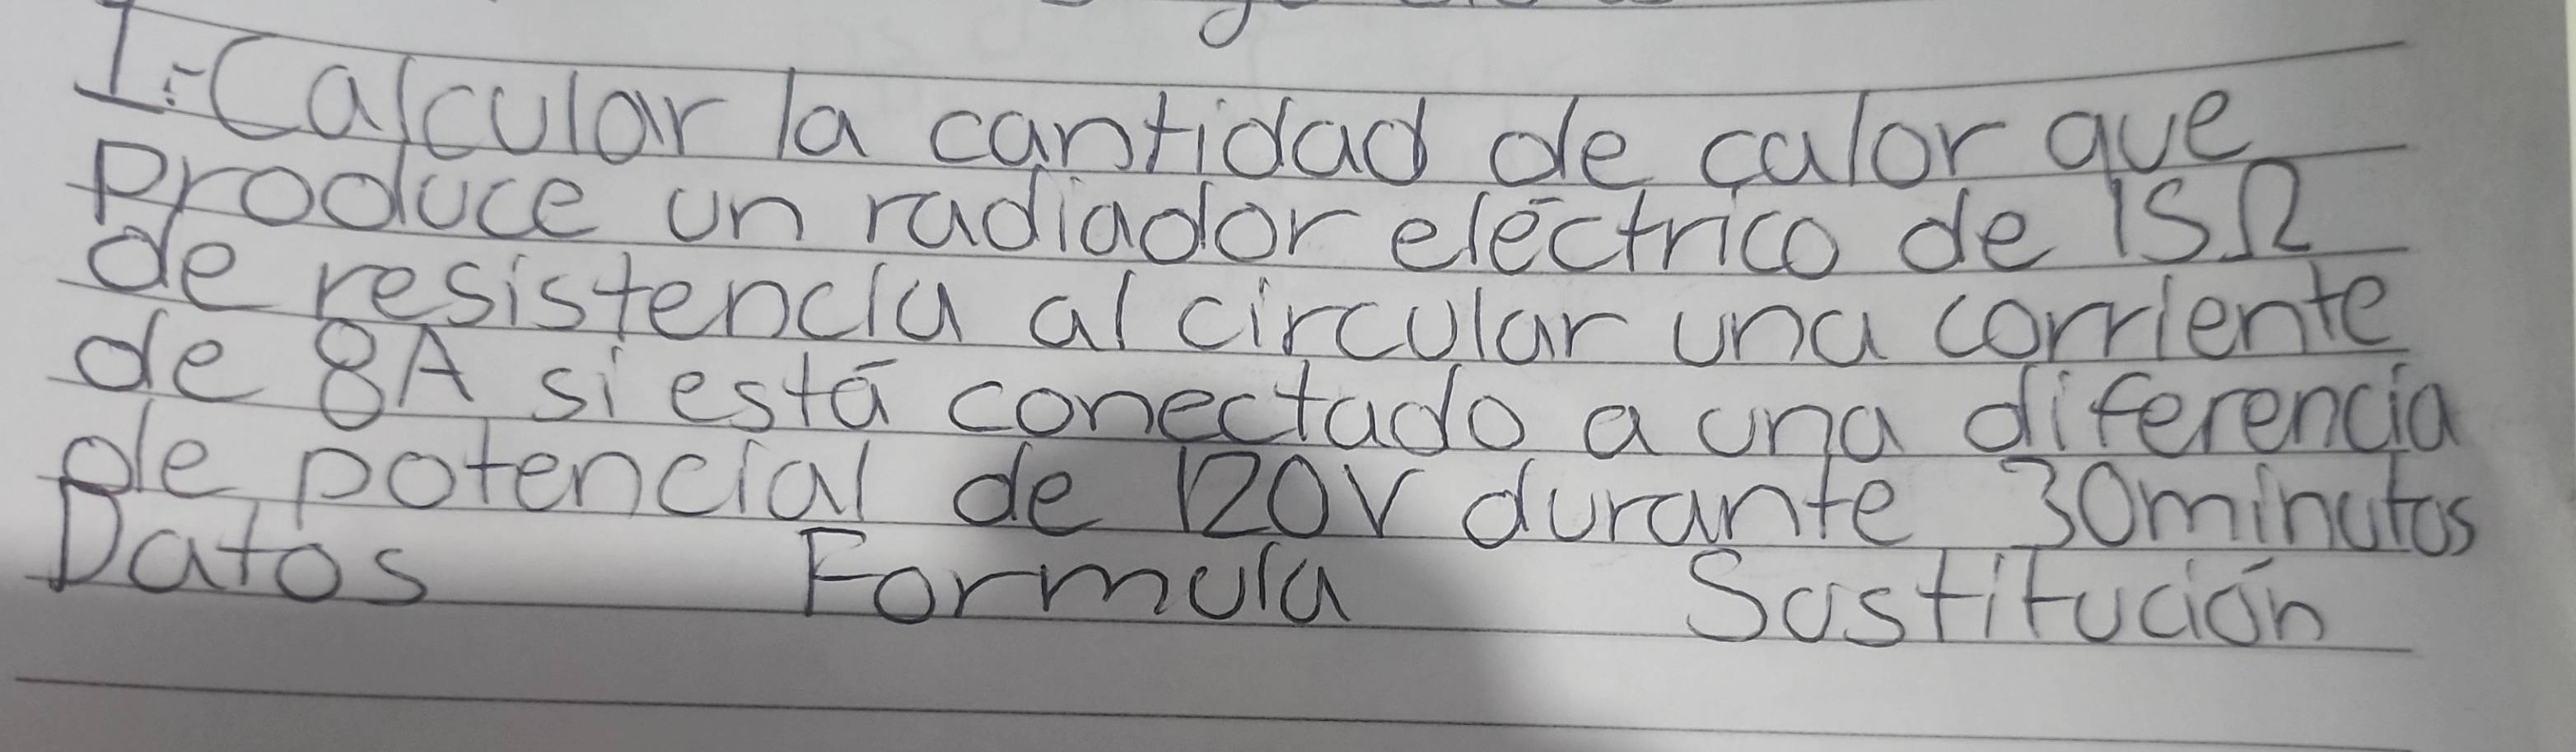 1.-Calcular la cantidad de calor que
produce un radiador eléctrico de 15Ω
de resistencia al circular una corriente
de 8A si está conectado a una diferencia
de potencial de 120V durante 30minutos
Datos Formula Sustitución